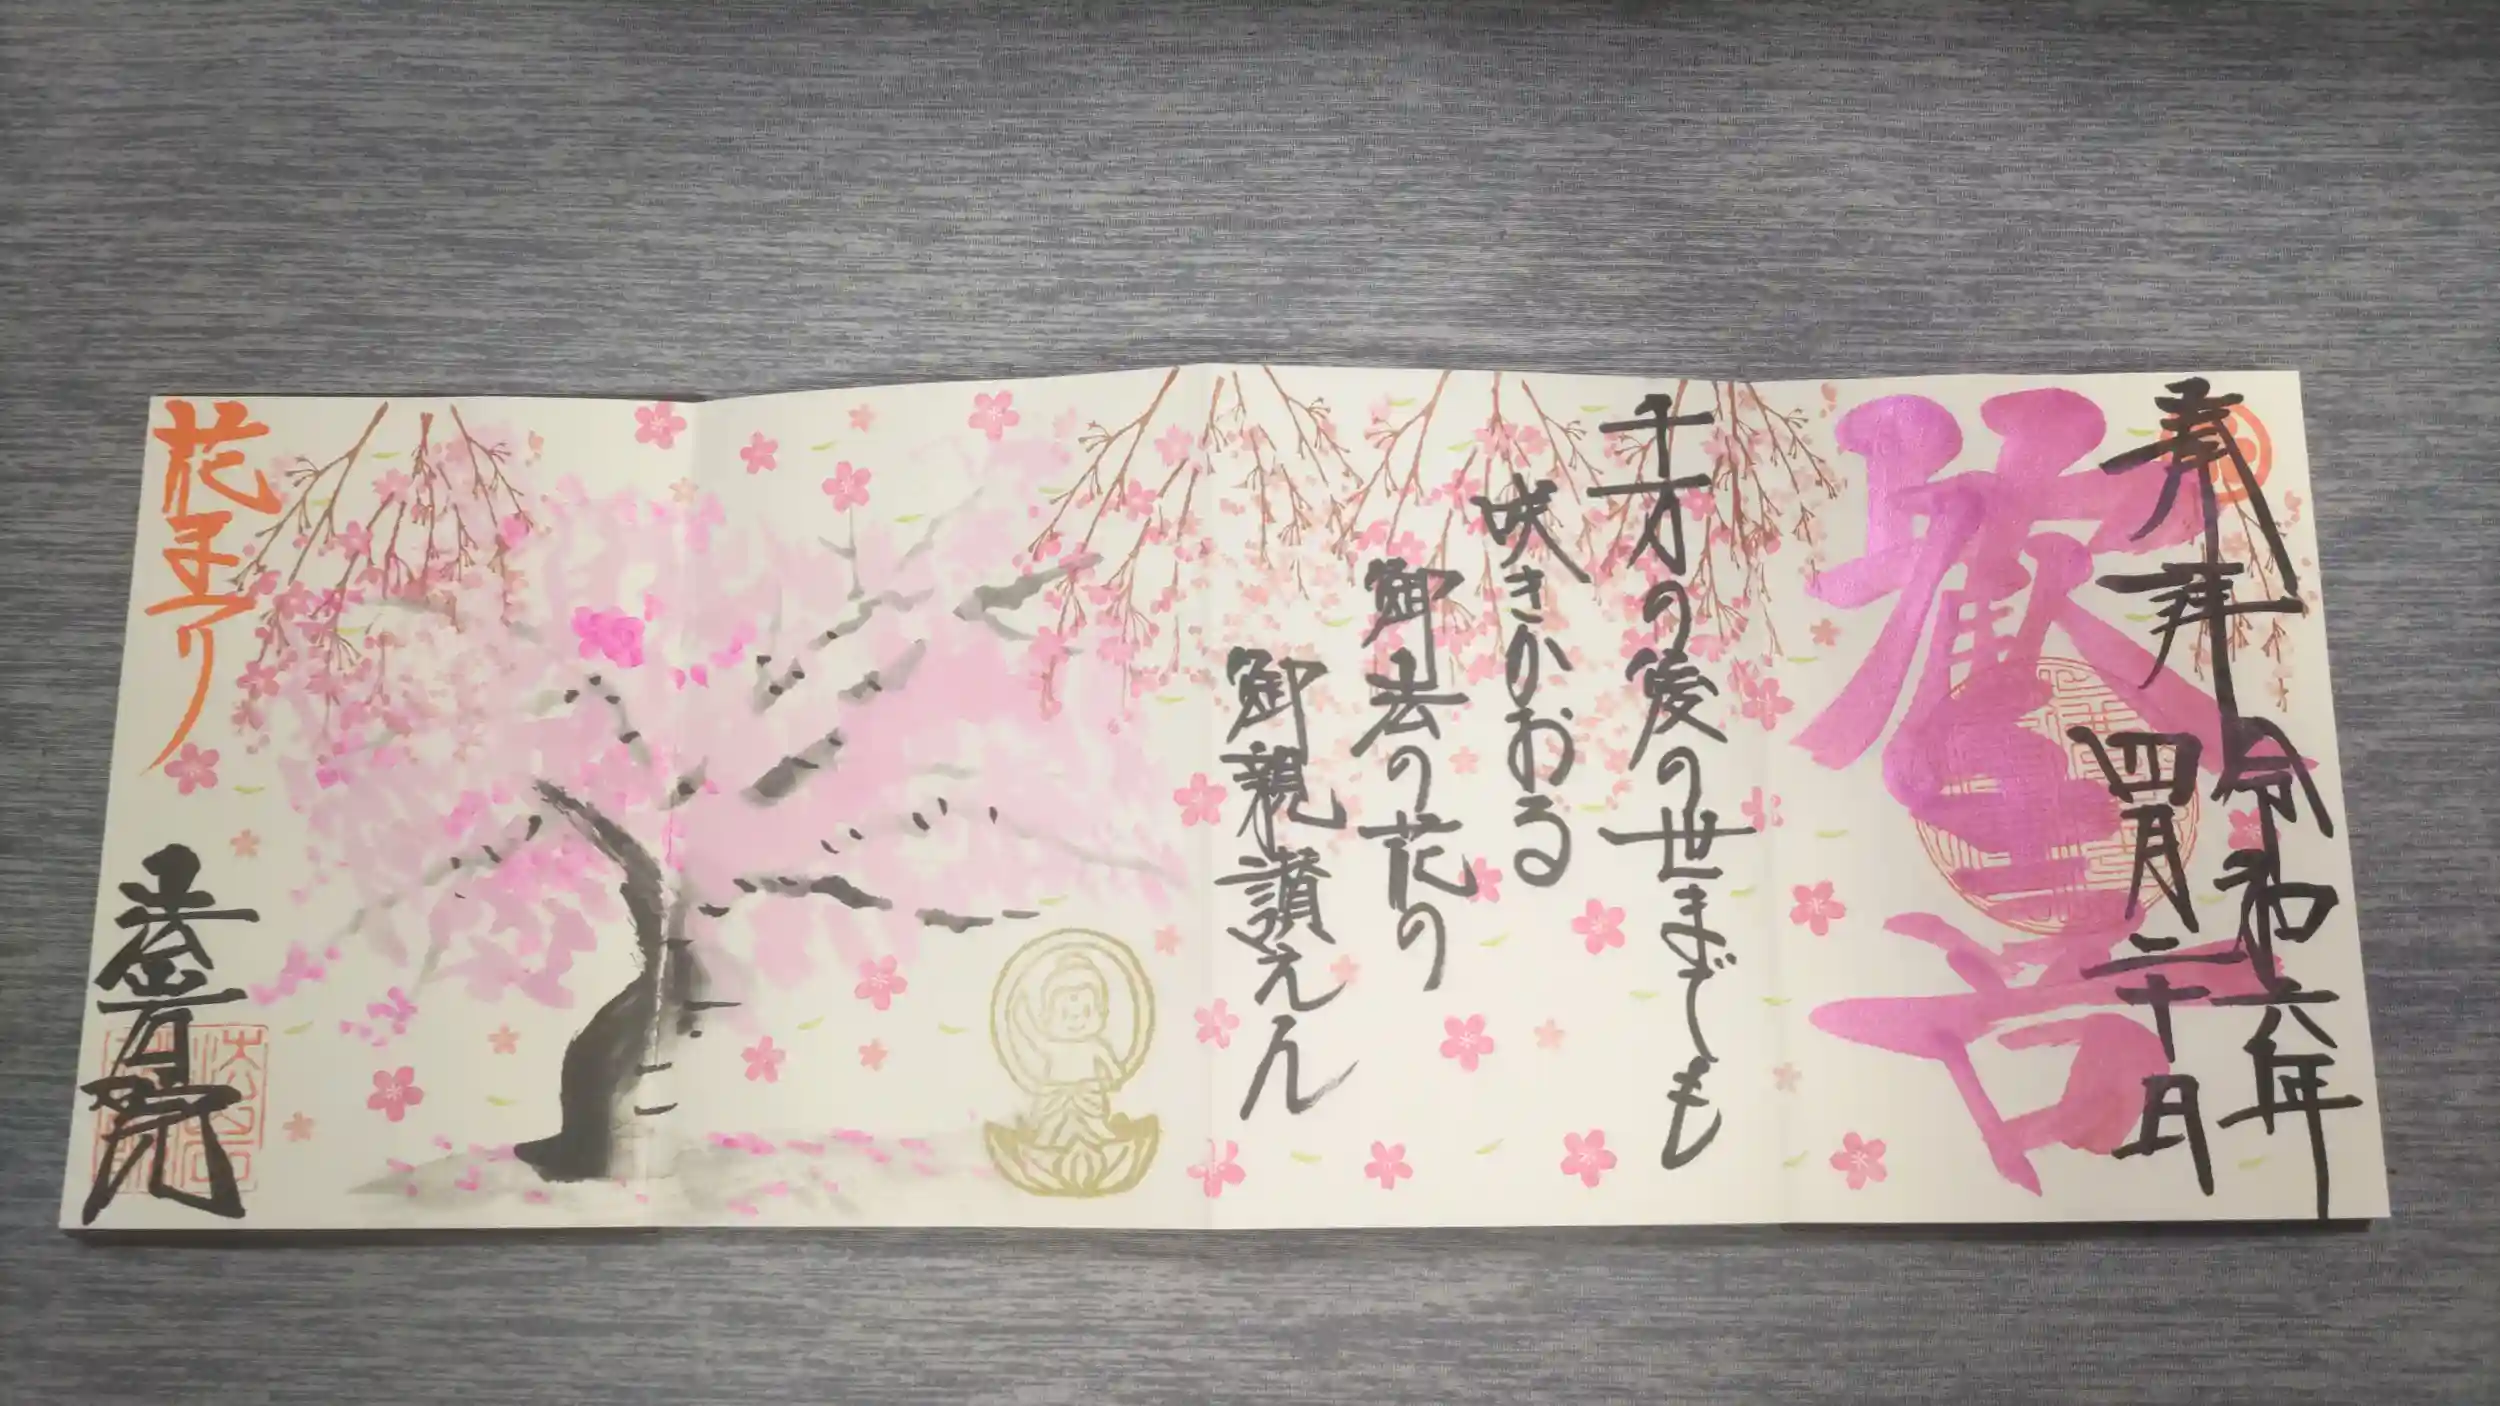 奉拝
令和六年
四月二十日
歓喜
千万の後の世までも
咲きかおる
御法の花の
御親讃えん
花まり
法岩院